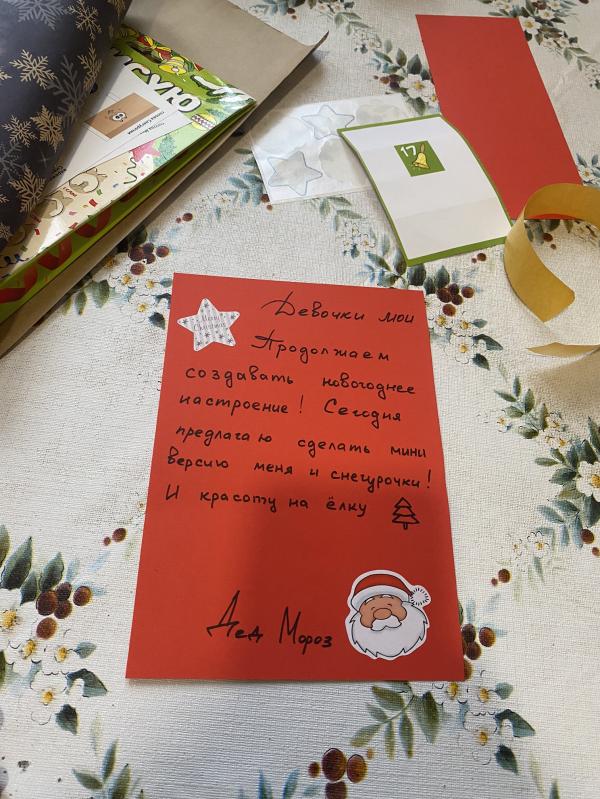 17
Merry
Christmas
Девочки мои
Продолжаем
создавать новогоднее
настроение! Сегодня
предлагаю сделать мини
версию меня и снегурочки!
И красоту на ёлку
Дед Мороз